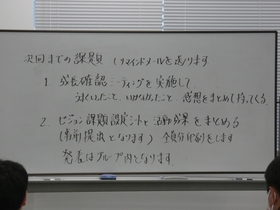 次回までの課題 (リマインドメールを送ります
1 成長確認ミーティングを実施して
うまくいったこと いかなかったこと 感想をまとめて持ってくる
2. ビジョン課題設定シートと活動成果をまとめる
(事前提出となります) 全員分印刷をします
発表はグループ内となります